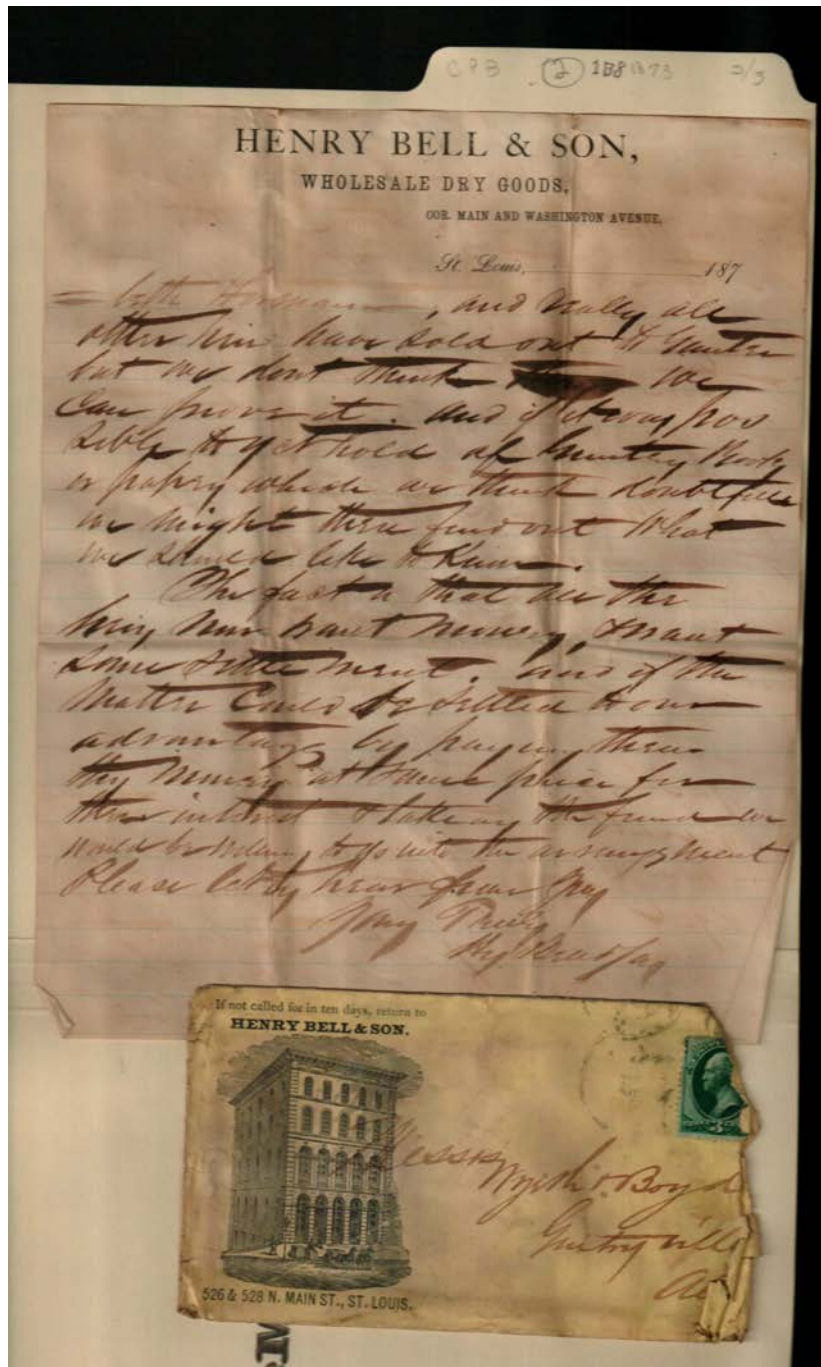 CPB (2) 1B8 1873 2/3
HENRY BELL & SON,
WHOLESALE DRY GOODS,
COR. MAIN AND WASHINGTON AVENUE,
St. Louis, 187
, and really all
other heirs have sold out to
but we dont think we
Can prove it. and if it was pos
sible to get hold of Books
or papers which we think doubtful
we might there find out What
we should like to Know.
The fact is that all the
heirs Now want Money, & want
Some Settlement. and if the
Matter Could be Settled to our
advantage by paying them
the Money at Same price for
their interest & take up the fund we
would be willing to go into the arrangement
Please let us hear from you
Yours Truly
Hy
If not called for in ten days, return to
HENRY BELL & SON.
Messrs
& Boyd
ville
526 & 528 N. MAIN ST., ST. LOUIS.